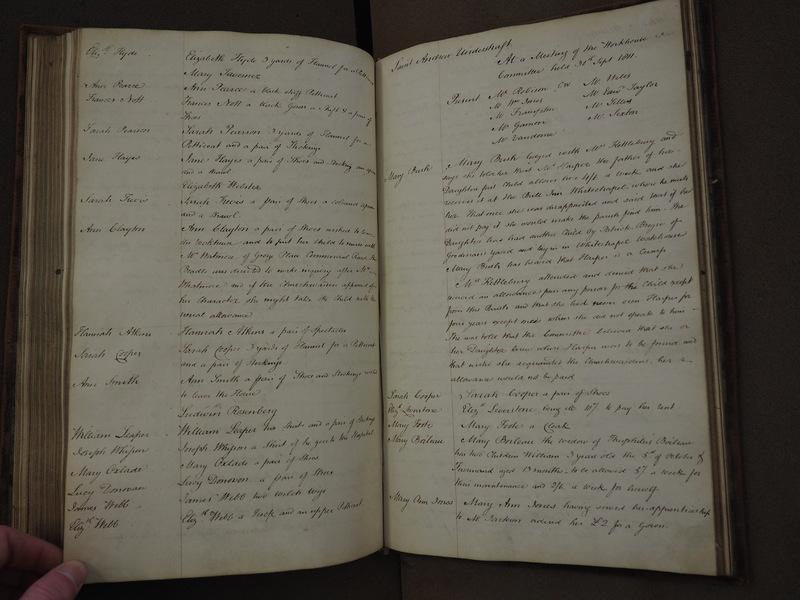 Eliz.th Hyde Elizabeth Hyde 3 yards of Flannel for a Petticoat
Mary
Ann Pearce Ann Pearce a black stuff Petticoat
Frances Nott Frances Nott a black Gown a Shift & a pair of
Shoes
Sarah Pearson Sarah Pearson 3 yards of Flannel for a
Petticoat and a pair of Stockings
Jane Hayes Jane Hayes a pair of Shoes and Stockings an apron
and a Shawl
Elizabeth Webster
Sarah a pair of Shoes a coloured apron
and a Shawl
Ann Clayton Ann Clayton a pair of Shoes wished to leave
the Workhouse and to put her Child to nurse with
Mrs of George Commercial Road the
Beadle was directed to make inquiry after Mrs
and if the Churchwarden approved of
her Character she might take the Child with the
usual allowance
Hannah Atkins Hannah Atkins a pair of Spectacles
Sarah Cooper Sarah Cooper 3 yards of Flannel for a Petticoat
and a pair of Stockings
Ann Smith Ann Smith a pair of Shoes and Stockings wished
to leave the House
Ludwig Rosenberg
William Leaper William Leaper two Shirts and a pair of Stockings
Joseph Whipson Joseph Whipson a Shirt if he goes to the Hospital
Mary Oxlade Mary Oxlade a pair of Shoes
Lucy Donovan Lucy Donovan a pair of Shoes
James Webb James Webb two Welch Wigs
Eliz.th Webb Eliz.th Webb a Frock and an upper Petticoat
Saint Andrew Undershaft
At a Meeting of the Workhouse
Committee held 30th Sept 1811.
Present Mr Robson CW Mr Miles
Mr Wm Jones Mr Edwd Taylor
Mr Frampton Mr
Mr Gamon Mr Sexton
Mr Vandome
Mary Bush Mary Bush lodged with Mrs Kettlebury and
says she told her that Mr Harper the father of her
Daughters first Child allows her left a week and she
receives it at the Bull Inn Whitechapel where he meets
her That once she was disappointed and said that if he
did not pay it she would make the parish find him. The
Daughter has had another Child by Patrick Bryan of
Goodmans Yard and lays in Whitechapel Workhouse
Mary Bush has heard that Harper is a
Mrs Kettlebury attended and denied that she
received an allowance from any person for the Child except
from the Parish and that she had never seen Harper for
four years except once when she did not speak to him
She was told that the Committee believed that she or
her Daughter knew where Harper was to be found and
that until she acquainted the Churchwardens her
allowance would not be paid
Sarah Cooper Sarah Cooper a pair of Shoes
Eliz.th Leverstone Eliz.th Leverstone 10/ to pay her rent
Mary Foote Mary Foote a Cloak
Mary Britaine Mary Britaine the widow of Theophilus Britaine
has two Children William 3 years old the 3rd of October &
aged 13 months, to be allowed 5/ a week for
their maintenance and 2/6 a week for herself
Mary Ann Jones Mary Ann Jones having served her apprenticeship
to Mr Jackson ordered her £2 for a Gown.